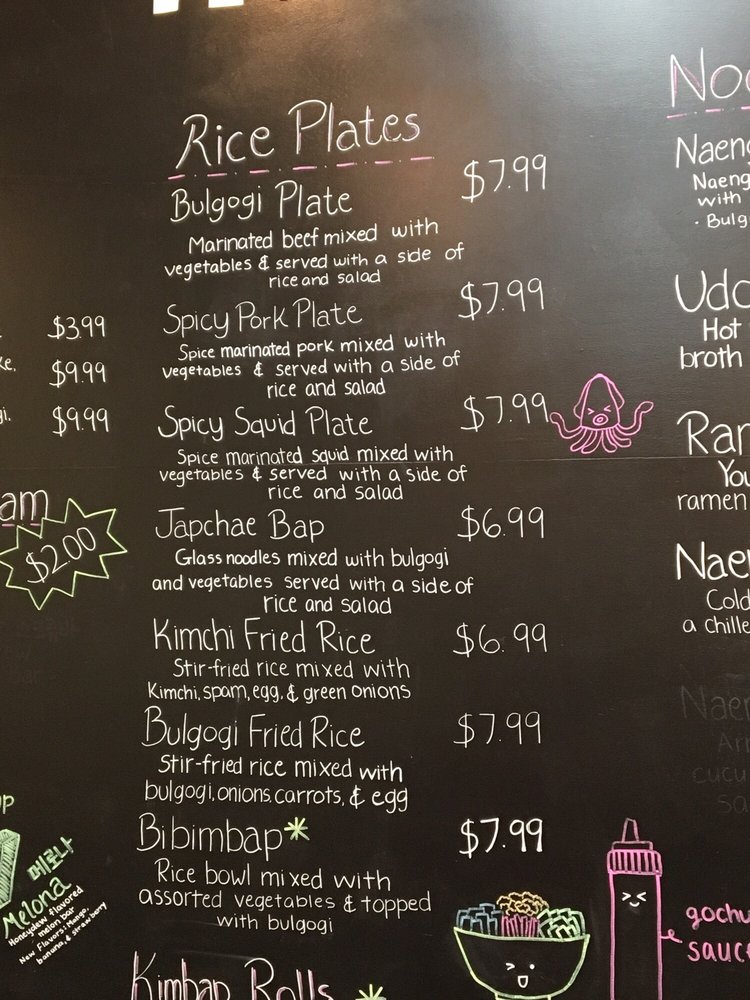 $3.99
$9.99
$9.99
am
$2.00
메로나
Melona
Honeydew flavored
melon bar
New Flavors: Mango,
banana, & strawberry
Rice Plates
Bulgogi Plate $7.99
Marinated beef mixed with
vegetables & served with a side of
rice and salad
Spicy Pork Plate $7.99
Spice marinated pork mixed with
vegetables & served with a side of
rice and salad
Spicy Squid Plate $7.99
Spice marinated squid mixed with
vegetables & served with a side of
rice and salad
Japchae Bap $6.99
Glass noodles mixed with bulgogi
and vegetables served with a side of
rice and salad
Kimchi Fried Rice $6.99
Stir-fried rice mixed with
Kimchi, spam, egg, & green onions
Bulgogi Fried Rice $7.99
Stir-fried rice mixed with
bulgogi, onions, carrots, & egg
Bibimbap* $7.99
Rice bowl mixed with
assorted vegetables & topped
with bulgogi
Kimbap Rolls *
Noo
Naeng
Naeng
with
· Bulg
Udo
Hot
broth
Ram
You
ramen
Naen
Cold
a chille
gochu
sauce